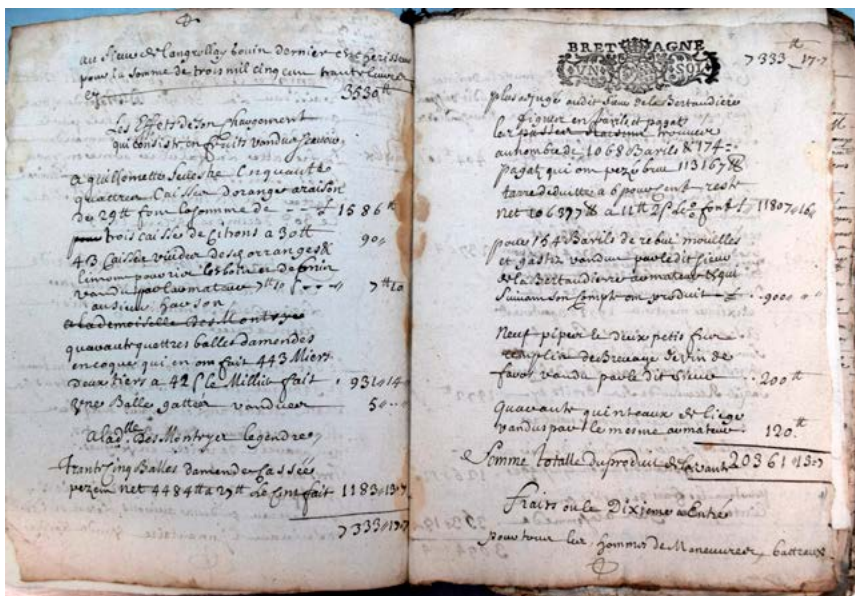 au Sieur de Langrollay bouin dernier encherisseur
pour la somme de trois mil cinq cent trante livres
Cy 3530 tt
Les Effets de son chargement
qui consiste en fruits vandus scavoir
a guillomette Sevestre Cinquante
quattre Caisses d'oranges a raison
de 29 tt font la somme de 1586 tt
trois caisses de Citrons a 30 tt 90
43 Caisses vuides des orranges &
limons pourris
vandu par l'armateur 7 tt 10 7 tt 10
au sieur hacson
a la demoiselle Des Montoyer
quarante quattres balles damendes
en coques qui en ont fait 443 Miers
deux tiers a 42 s le Millier fait 931 14
Vne Balle gattée vandue 5
A lad. lle Des Montoyer legendre
trante Cinq Balles damendes Cassées
pezent net 4484 tt a le Cent fait 1183 13 7
7333 17 7
BRETAGNE
VN SOL
7333 tt 17 7
plus adjugé audit Sieur de la Bertaudiere
figues en barils et pagas
trouvées
au nombre de 1068 Barils & 174
pagas qui ont pezé brut 113167 tt
tarre deduitte a 6 pour cent reste
net 106397 tt a 11 tt 2 s le c font 11807 16
pour 154 Barils de rebut mouillés
et gastez vandus par ledit sieur
de la Bertaudiere armateur & qui
Suivant Son Compte ont produit 900
Neuf pipes et deux petis fus
remplis de Breuvage de vin de
favos vandu par ledit sieur 200 tt
Quarante quinteaux de liege
vandus par le mesme armateur 120 tt
Somme totalle du produit de la vante 20361 13 7
Frais ou le Dixiome a Entré
pour tous les hommes de Maneuvres, batteaux